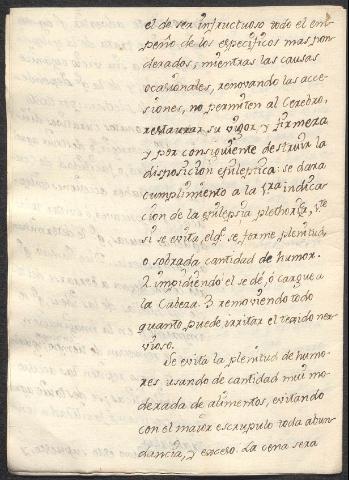 el de ser infructuoso todo el em-
peño de los especificos mas pon-
derados; mientras las causas
ocasionales, renovando las acce-
siones, no permiten al Cerebro,
restaurar su vigor, y firmeza
y por consiguiente destruir la
disposicion epileptica: se dara
cumplimiento a la 1ra indica-
cion de la epilepsia plethorica,
si se evita, elqe. se forme plenitud,
o sobrada cantidad de humor.
2 impidiendo el se dé, ò cargue a
la Cabeza. 3 removiendo todo
quanto puede irritar el tegido ner-
vioso.
Se evita la plenitud de humo-
res usando de cantidad mui mo-
derada de alimentos, evitando
con el maior escrupulo toda abun-
dancia, y exceso. La cena sera